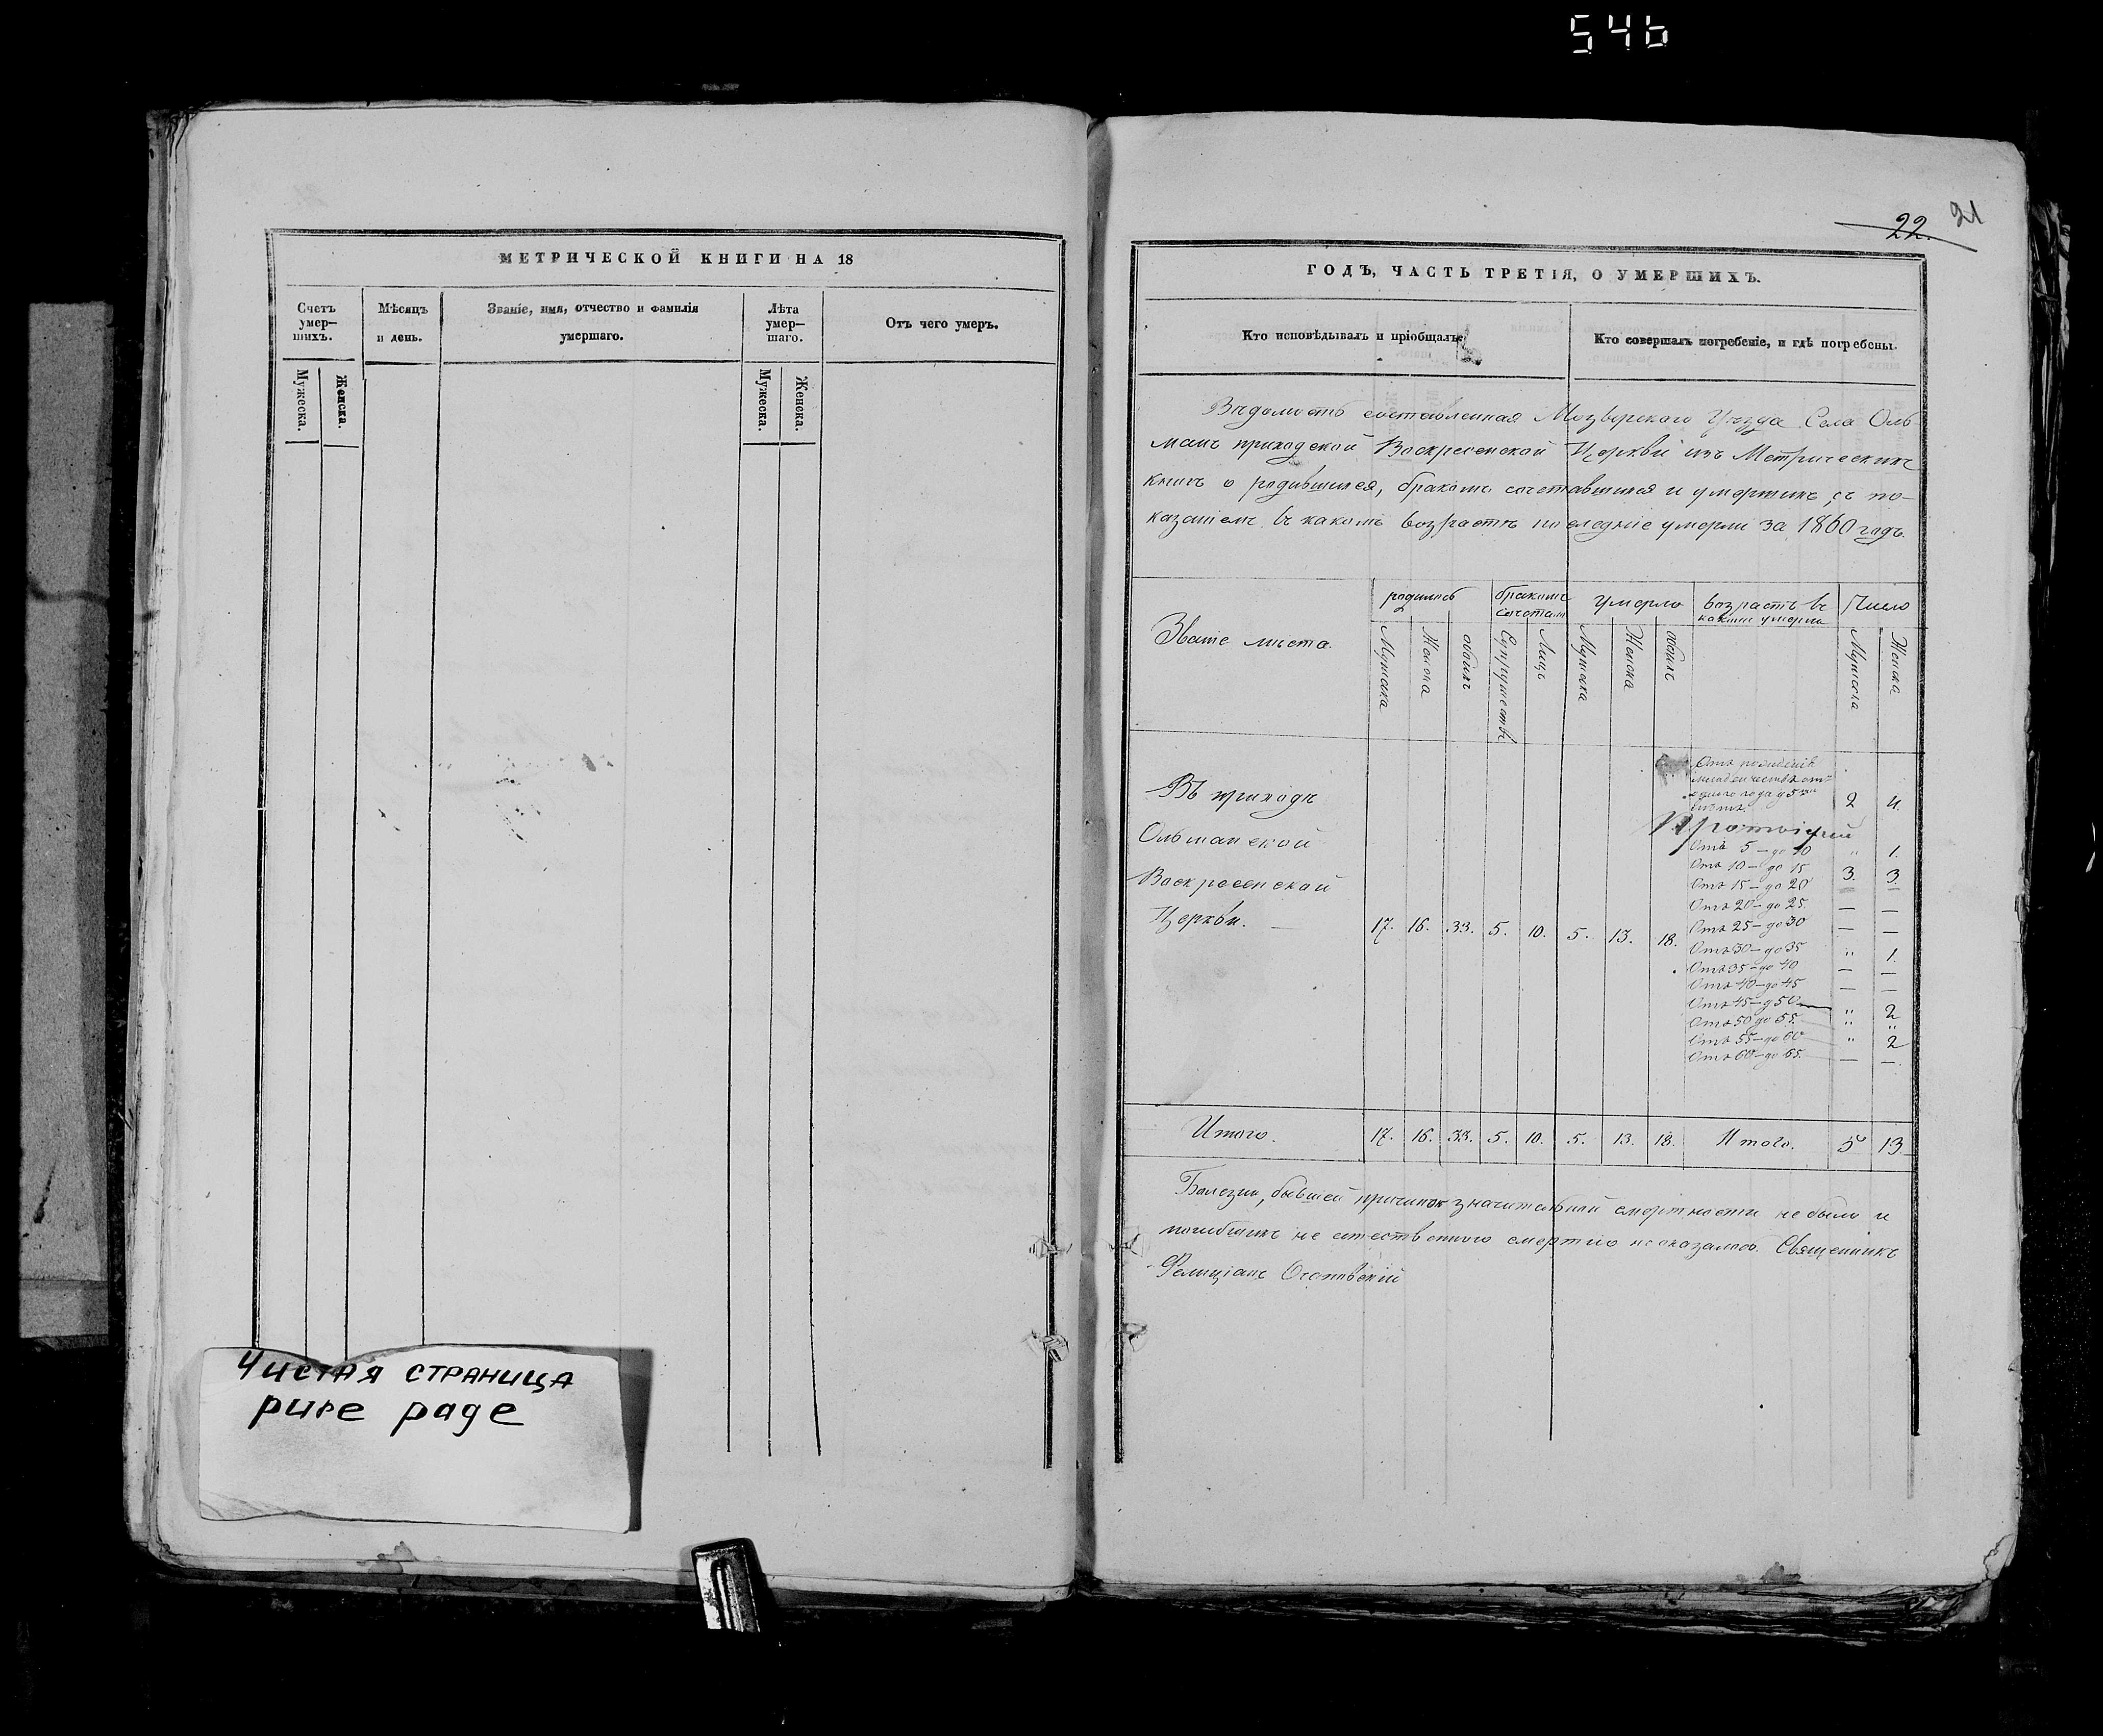 546
22. 21
МЕТРИЧЕСКОЙ КНИГИ НА 18
Счетъ умер— шихъ.
Мѣсяцъ и день.
Званіе, имя, отчество и фамилія умершаго.
Лѣта умер— шаго.
Отъ чего умеръ.
Мужеска.
Женска.
Мужеска.
Женска.
Чистая страница
pure page
ГОДЪ, ЧАСТЬ ТРЕТІЯ, О УМЕРШИХЪ.
Кто исповѣдывалъ и пріобщалъ
Кто совершалъ погребеніе, и гдѣ погребены.
Вѣдомость составленная Мозырскаго Уѣзда Села Оль-
манъ приходской Воскресенской Церкви изъ Метрическихъ
книгъ о родившихся, бракомъ сочетавшихся и умершихъ, съ по-
казаніемъ въ какомъ возрастѣ последніе умерли за 1860 годъ.
Званіе мѣста.
родилось
бракомъ сочетал
умерло
возрастъ въ какомъ умерли
Число
Мужска
Женска
обоихъ
Супружествъ
Лицъ
Мужска
Женска
обоихъ
Мужска
Женска
Въ приходѣ
Ольманской
Воскресенской
Церкви. —
17. 16. 33. 5. 10. 5. 13. 18.
одного года до 5 2 4.
Отъ 5 — до 10 " 1.
Отъ 10 — до 15 3. 3.
Отъ 15 — до 20
Отъ 20 — до 25. — —
Отъ 25 — до 30 — —
Отъ 30 — до 35 " 1.
Отъ 35 — до 40 — —
Отъ 40 — до 45 — —
Отъ 45 — д 50 " 2
Отъ 50 до 55. " "
Отъ 55 — до 60 " 2
Отъ 60 — до 65. — —
Итого. 17. 16. 33. 5. 10. 5. 13. 18. Итого. 5 13
Болезни, бывшей причиною значительной смертности не было и
погибшихъ не естественною смертію не оказалось. Священникъ
Фелиціанъ